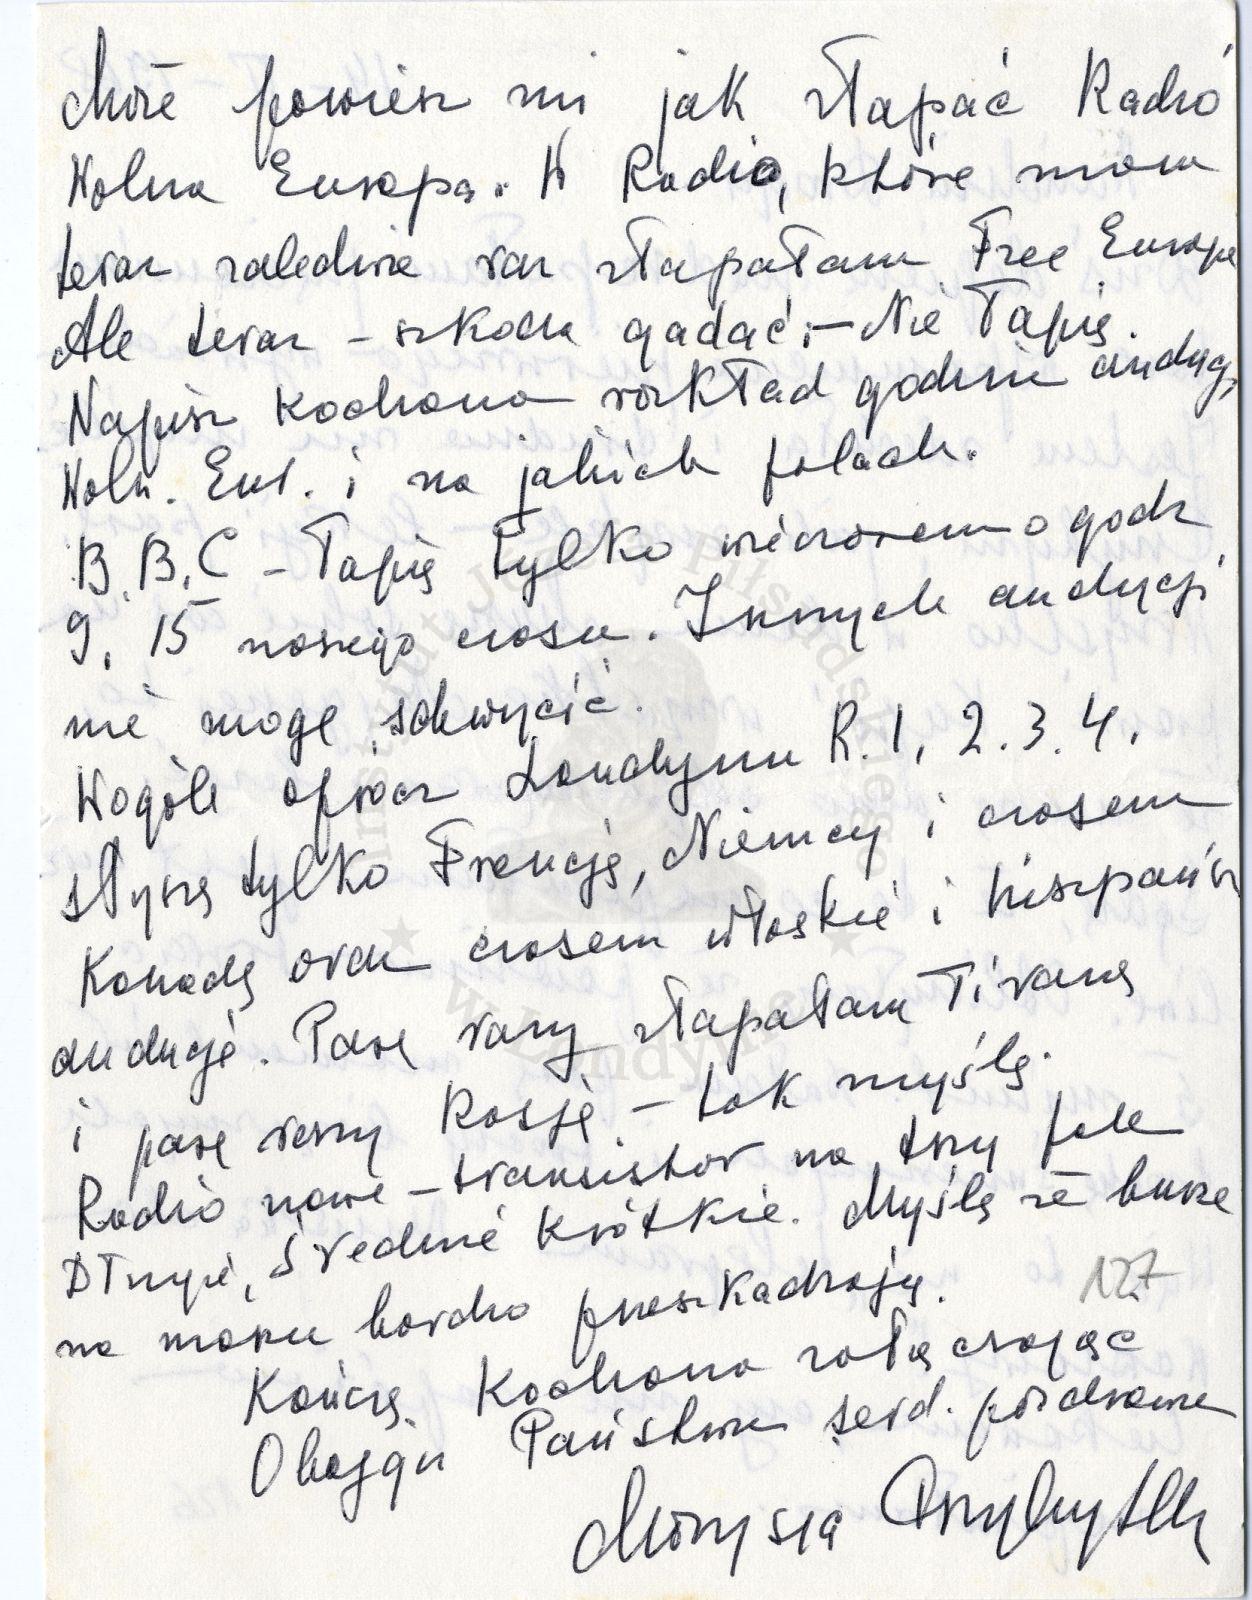 Może powiesz mi jak złapać Radio
Wolna Europa. W Radio, które mam
teraz zaledwie raz złapałam Free Europe
Ale teraz – szkoda gadać, – Nie łapię.
Napisz Kochana rozkład godzin audycj.
Woln. Eur. i na jakich falach.
B.B.C – łapię tylko wieczorem o godz.
9, 15 naszego czasu. Innych audycji
nie mogę schwycić.
Wogóle oprócz Londynu R. 1, 2. 3. 4,
słyszę tylko Francję, Niemcy i czasem
Kanadę oraz czasem włoskie i hiszpańsk
audycje. Parę razy złapałam Tiranę
i parę razy Rosję – tak myślę.
Radio nowe – transistor na trzy fale
Długie, średnie krótkie. Myślę że burze
na morzu bardzo przeszkadzają.
127
Kończę Kochana załączając
Obojgu Państwu serd. pozdrowie
Marysia
Instytut Józefa Piłsudskiego
w Londynie